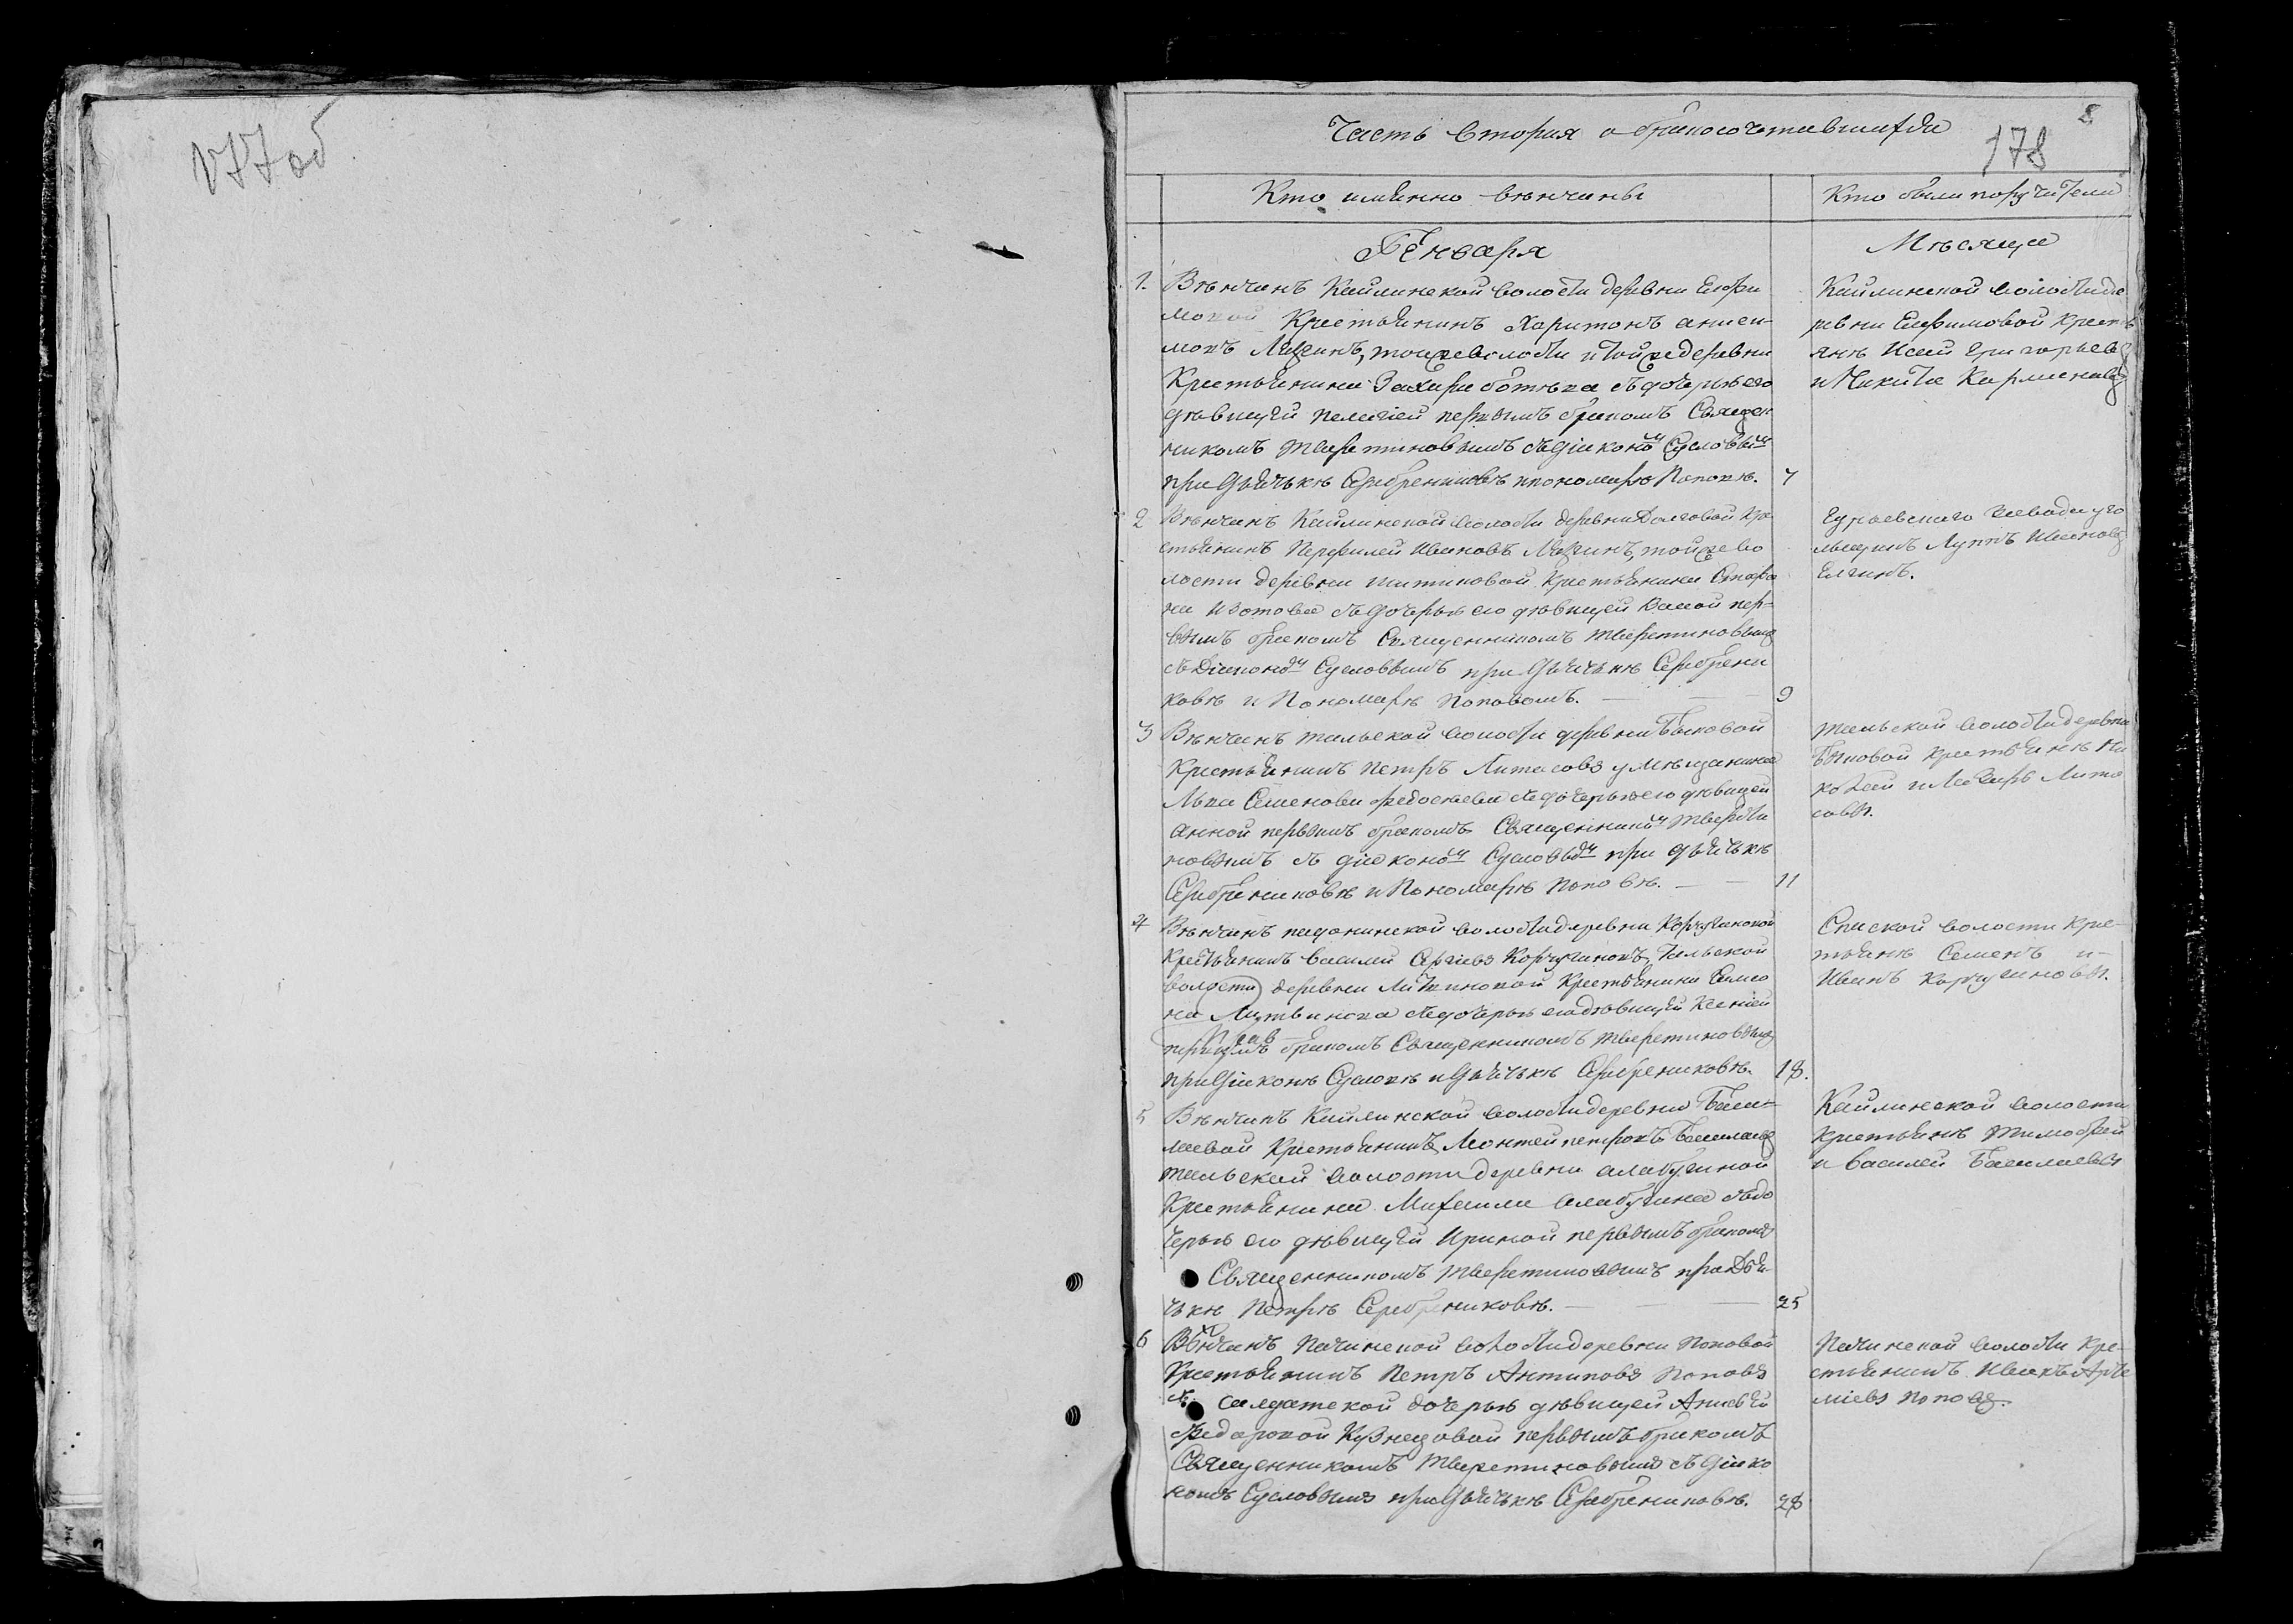 177об
8
Часть вторая о бракосочетавшихся
178
Кто имянно венчаны
Кто были поручители
Генваря
Месяца
1. Венчанъ Кайлинской волости деревни Елфи
мовой Крестьянинъ Харитонъ аниси-
мовъ Лазгинъ, тойже волости и тойже деревни
Крестьянина Захара ботева съ дочерью его
девицей пелагией первымъ бракомъ Священ
никомъ тверетиновымъ съ диякономъ Сусловымъ
при дьячьке Серебрениковъ и пономаре Попове. 7
Кайлинской волости де
ревни Елфимовой крест
янъ Исай Григорьевъ
и Никита Карманавъ
2 Венчанъ Кайлинской волости деревни Долговой кре
стьянинъ Перфилей Ивановъ Лазгинъ, тойже во
лости деревни шитиковой крестьянина
изотова съ дочерью его девицей Васой пер-
вымъ бракомъ Священникомъ тверетиновымъ
съ Диякономъ Сусловымъ при дьячьке Серебрени
кове и Пономаре Поповомъ. 9
Гурьевскаго завода
Лупъ Ивановъ
Елгинъ.
3 Венчанъ тальской волости деревни Быковой
Крестьянинъ Петръ Литасовъ у мещанина
Льва Семенова федосеева съ дочерью его девицей
анной первымъ бракомъ Священникомъ твере
новымъ съ диякономъ Сусловымъ при дьячьке
Серебреникове и Пономаре Попове. 11
тальской волости деревни
Быковой крестьяне Ни
колай и Макаръ Лита
совы.
4 Венчанъ пачинской волости деревни Корчугановой
Крестьянинъ василей Сергиевъ Корчугановъ, тальской
волости деревни Литвиновой Крестьянина Симо
на Литвинова съ дочерью его девицей Ксенией
первымъ бракомъ Священникомъ тверетиновымъ
при диаконе Суслове и дьячьке Серебреникове. 18.
Спаской волости кре-
стьяне Семенъ и
Иванъ Корчугановы.
5 Венчанъ Кайлинской волости деревни Басал-
аевой Крестьянинъ, Моисей петровъ Басалаевъ
тальской волости деревни алабугиной
Крестьянина Михаила алабугина съ до
черью его девицей Ириной первымъ бракомъ
Священникомъ тверетиновымъ при Дья-
чьке Петре Серебреникове. 25
Кайлинской волости
крестьяне Тимофей
и василей Басалаевы
6 Венчанъ Пачинской волости деревни Поповой
Крестьянинъ Петръ Антиповъ Поповъ
съ салдатской дочерью девицей Анисьей
Федоровой Кузнецовой первымъ бракомъ
Священникомъ тверетиновымъ съ дияко
номъ Сусловымъ при дьячьке Серебреникове. 28
Пачинской волости кре-
стьянинъ Иванъ Арте
миевъ поповъ.